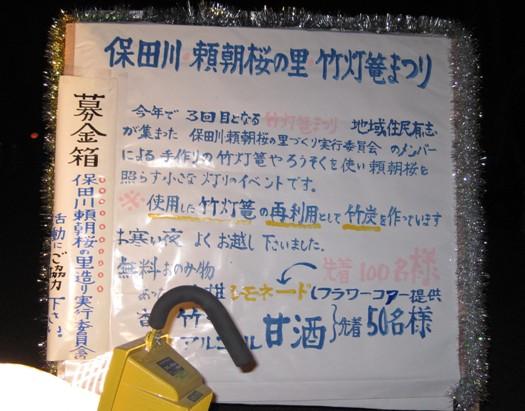 保田川 頼朝桜の里 竹灯篭まつり
今年で 3回目となる 竹灯篭まつり 地域住民有志
が集まった 保田川頼朝桜の里づくり実行委員会 のメンバー
による 手作りの竹灯篭やろうそくを使い 頼朝桜を
照らす小さな 灯りのイベントです。
※使用した竹灯篭の再利用として 竹炭を作っています
お寒い夜 よくお越し下さいました。
無料 お飲み物
先着 100名様
レモネード (フラワーコアー提供
竹
アルコール 甘酒 } 先着 50名様
募金箱
保田川頼朝桜の里造り実行委員会
活動にご協力 下さい。